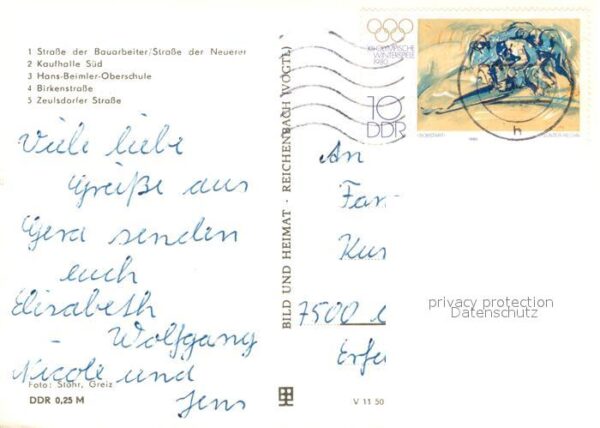 1 Straße der Bauarbeiter/Straße der Neuerer
2 Kaufhalle Süd
3 Hans-Beimler-Oberschule
4 Birkenstraße
5 Zeulsdorfer Straße
Viele liebe
Grüße aus
Gera senden
euch
Elisabeth
Wolfgang
Nicole und
Jens
Foto: Stöhr, Greiz
DDR 0,25 M
BILD UND HEIMAT · REICHENBACH (VOGTL)
V 11 50
OLYMPISCHE
WINTERSPIELE
1980
10
DDR
h
An
Fam
Kur
7500
Erfe
privacy protection
Datenschutz